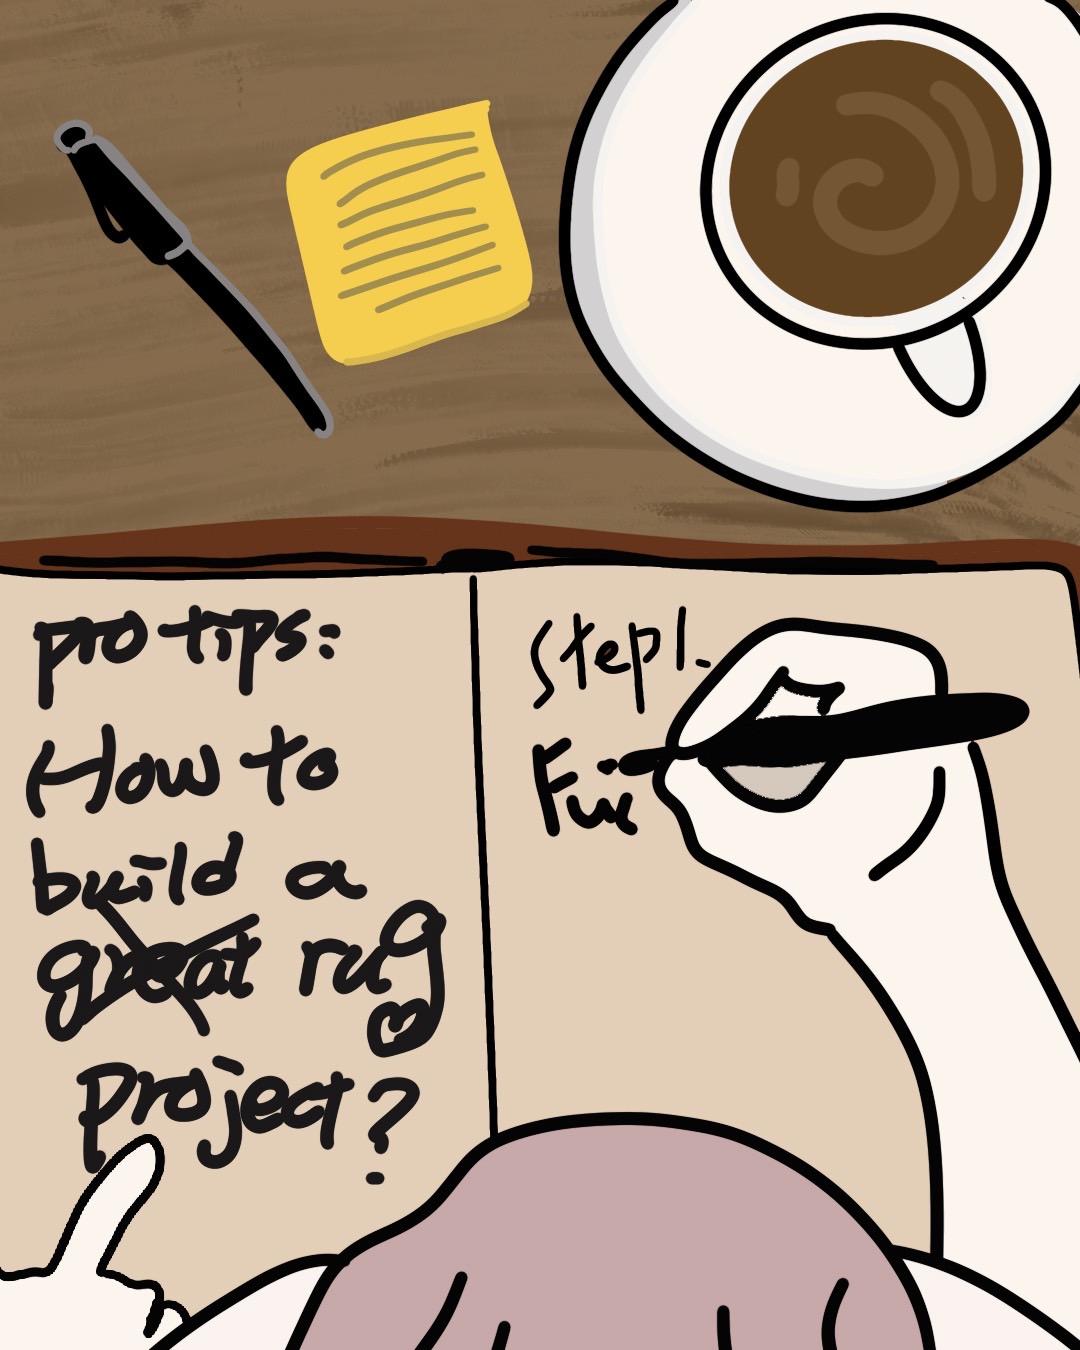 pro tips:
How to
build a
great rag
project?
Step 1.